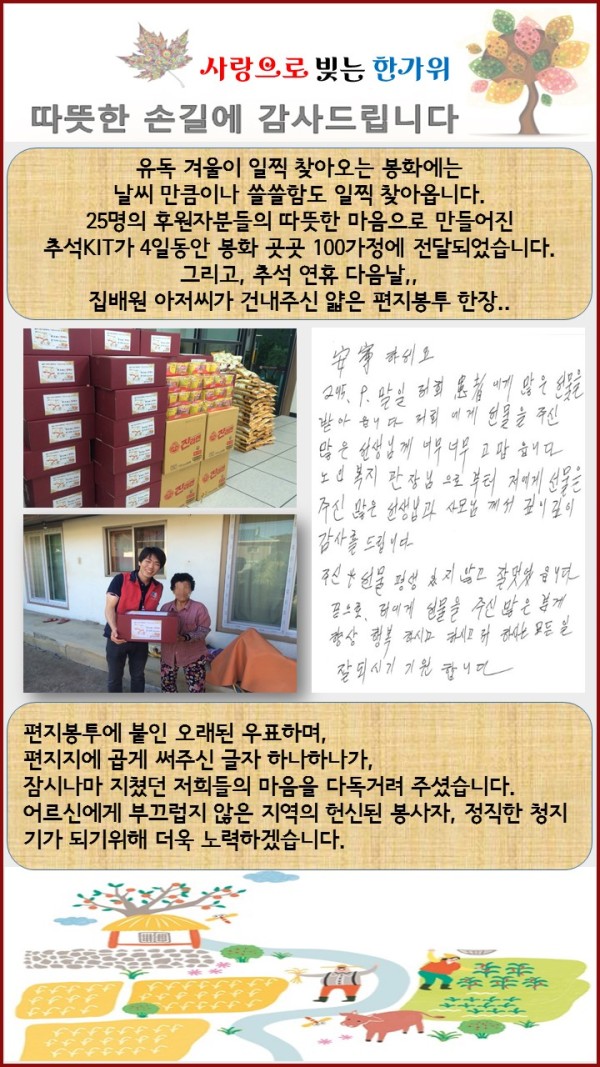 사랑으로 빚는 한가위
따뜻한 손길에 감사드립니다
유독 겨울이 일찍 찾아오는 봉화에는
날씨 만큼이나 쓸쓸함도 일찍 찾아옵니다.
25명의 후원자분들의 따뜻한 마음으로 만들어진
추석KIT가 4일동안 봉화 곳곳 100가정에 전달되었습니다.
그리고, 추석 연휴 다음날,,
집배원 아저씨가 건내주신 얇은 편지봉투 한장..
安寧 하세요
9. 말일 저희 에게 많은 선물을
받아 읍니다 저희 에게 선물을 주신
많은 선생님게 너무너무 고맙 읍니다
노인 복지 관장님 으로부터 저에게 선물을
주신 많은 선생님과 사모님 께서 깊이깊이
감사를 드립니다.
주신 선물 평생 잊지 않고 잘먹겠 읍니다
끝으로, 저에게 선물을 주신 많은 분게
항상 행복 하시고 하시고저 하시는 모든 일
잘되시기 기원 합니다
편지봉투에 붙인 오래된 우표하며,
편지지에 곱게 써주신 글자 하나하나가,
잠시나마 지쳤던 저희들의 마음을 다독거려 주셨습니다.
어르신에게 부끄럽지 않은 지역의 헌신된 봉사자, 정직한 청지
기가 되기위해 더욱 노력하겠습니다.